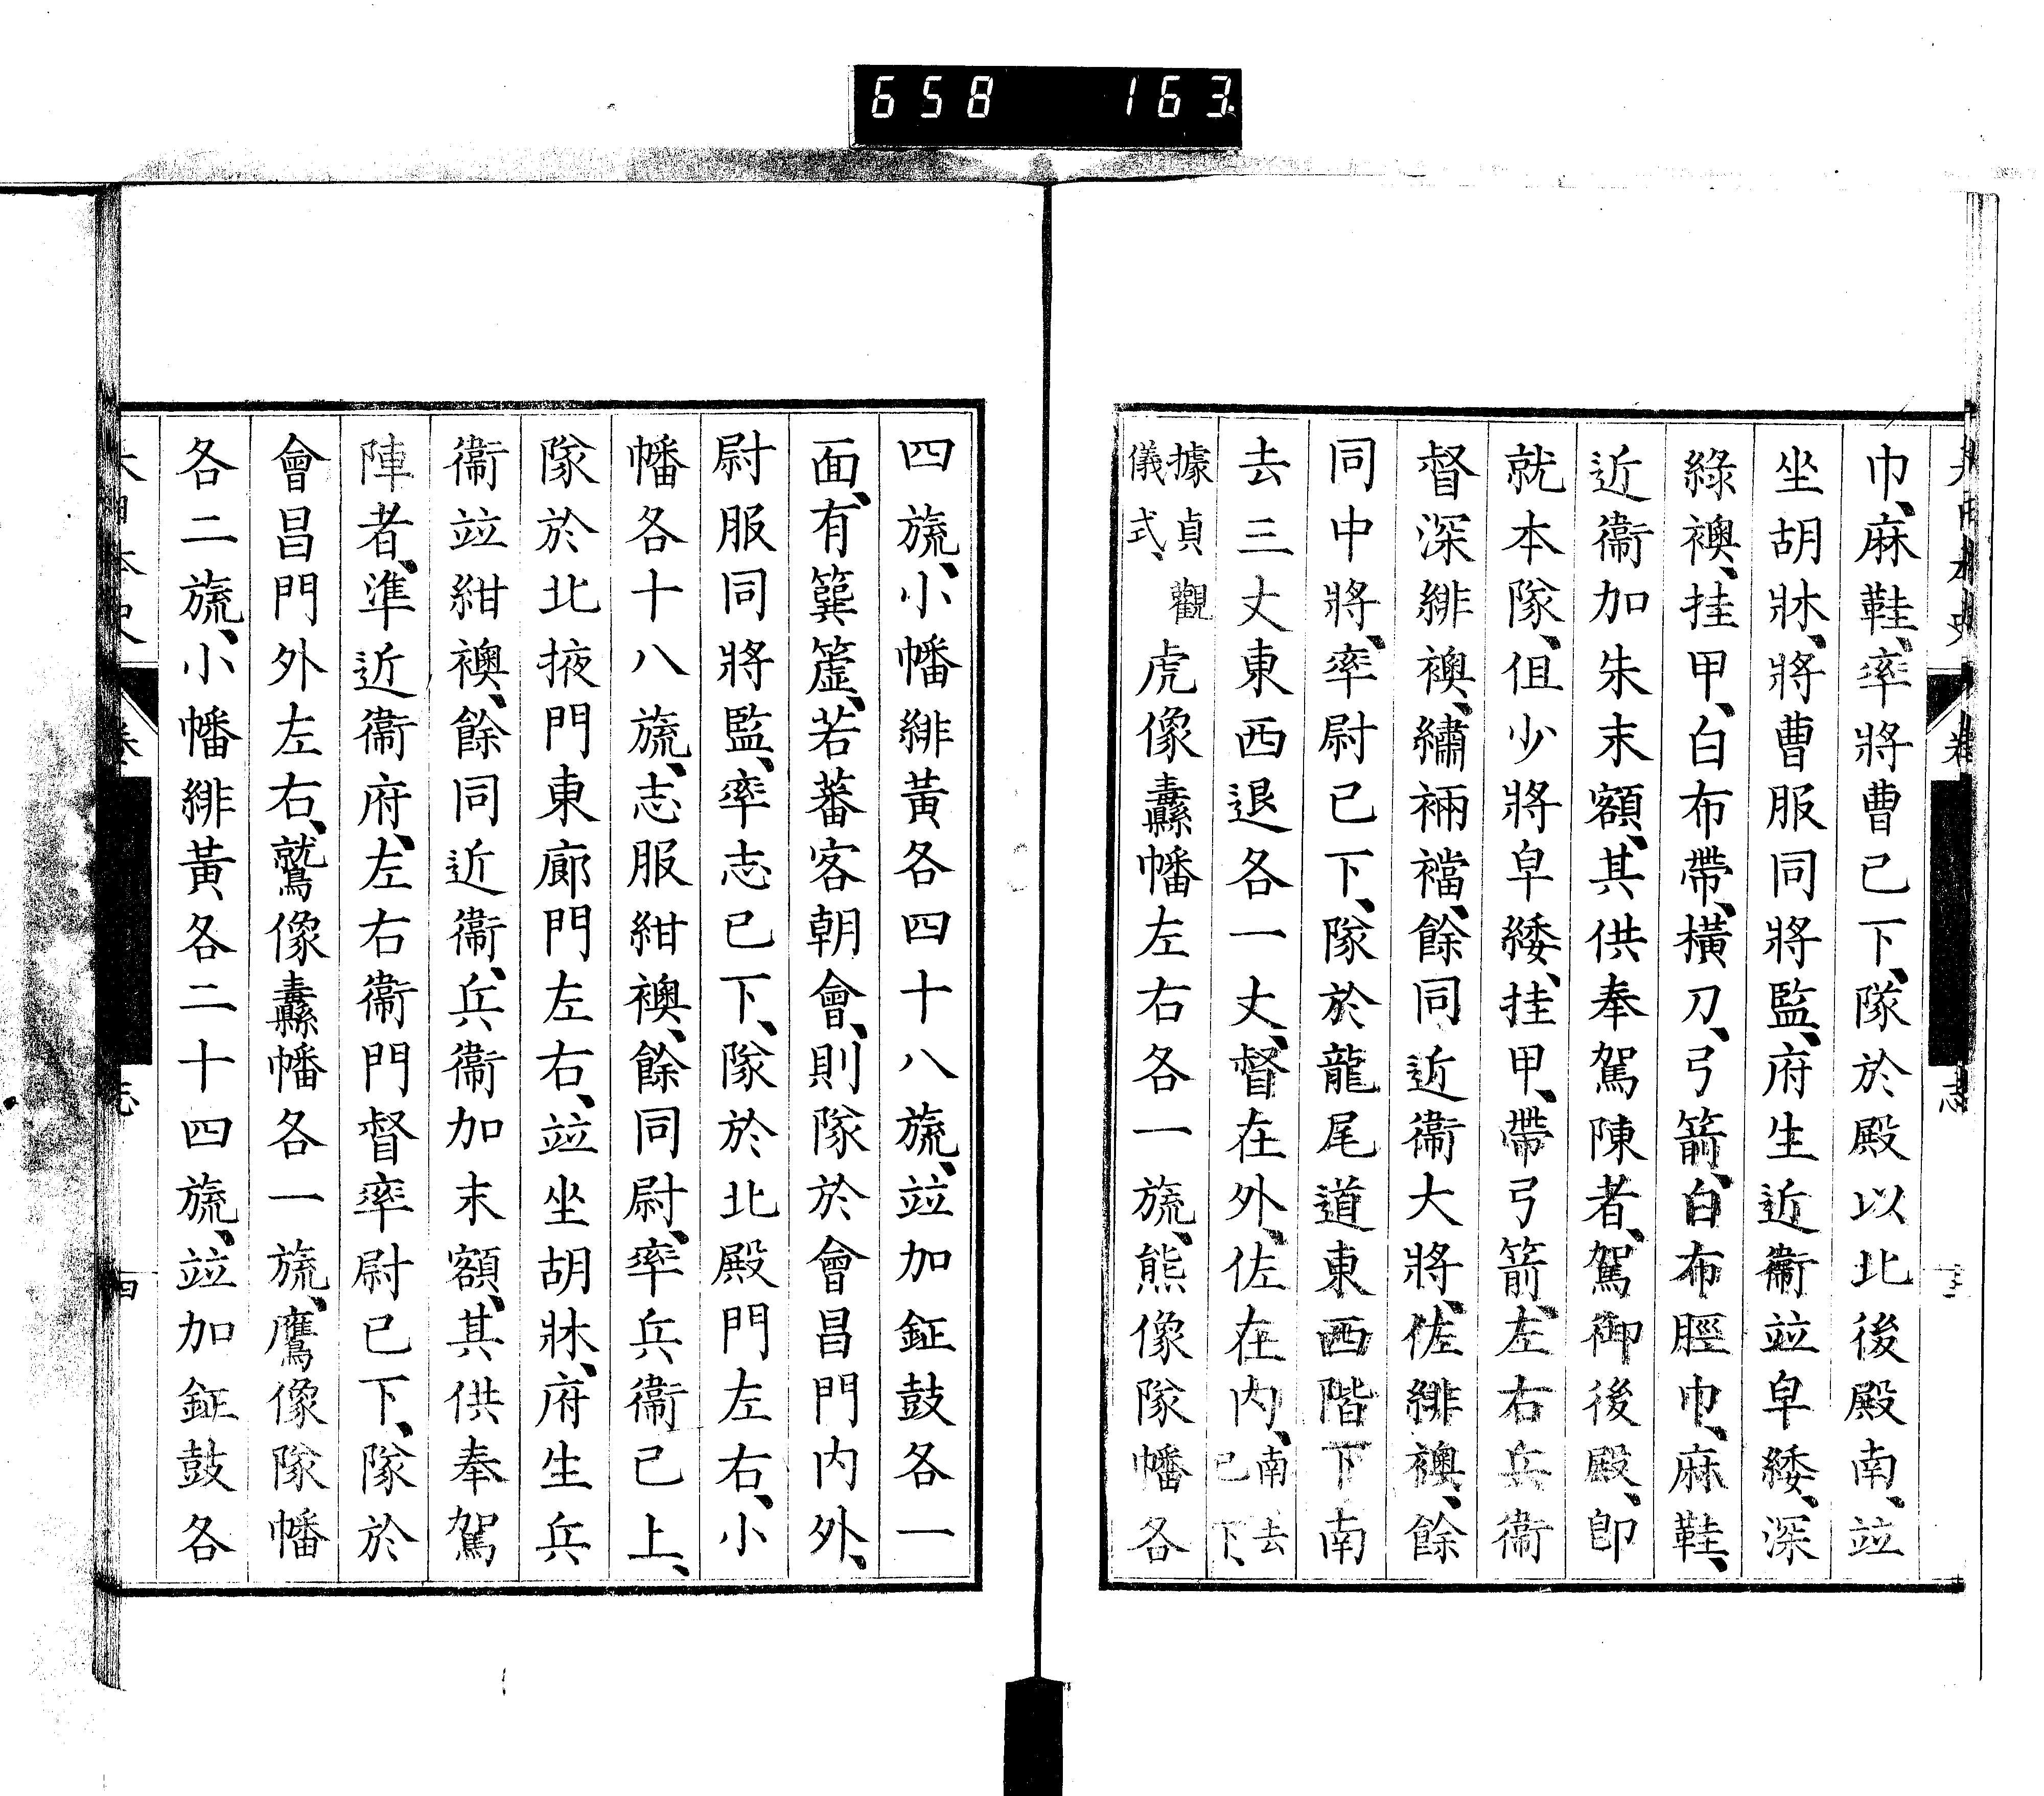 658 163
巾、麻鞋、率將曹已下、隊於殿以北後殿南、竝
坐胡牀、將曹服同將監、府生近衞竝皁緌、深
綠襖、挂甲、白布帶、橫刀、弓箭、白布脛巾、麻鞋、
近衞加朱末額、其供奉駕陳者、駕御後殿、卽
就本隊、但少將皁緌、挂甲、帶弓箭、左右兵衞
督深緋襖、繡裲襠、餘同近衞大將、佐緋襖、餘
同中將、率尉已下、隊於龍尾道東西階下南
去三丈東西退各一丈、督在外、佐在内、南去已下、
據貞觀儀式、虎像纛幡左右各一旒、熊像隊幡各
四旒、小幡緋黃各四十八旒、竝加鉦鼓各一
面、有簨簴、若蕃客朝會、則隊於會昌門内外、
尉服同將監、率志已下、隊於北殿門左右、小
幡各十八旒、志服紺襖、餘同尉、率兵衞已上、
隊於北掖門東廊門左右、竝坐胡牀、府生兵
衞竝紺襖、餘同近衞、兵衞加末額、其供奉駕
陣者、準近衞府、左右衞門督率尉已下、隊於
會昌門外左右、鷲像纛幡各一旒、鷹像隊幡
各二旒、小幡緋黃各二十四旒、竝加鉦鼓各